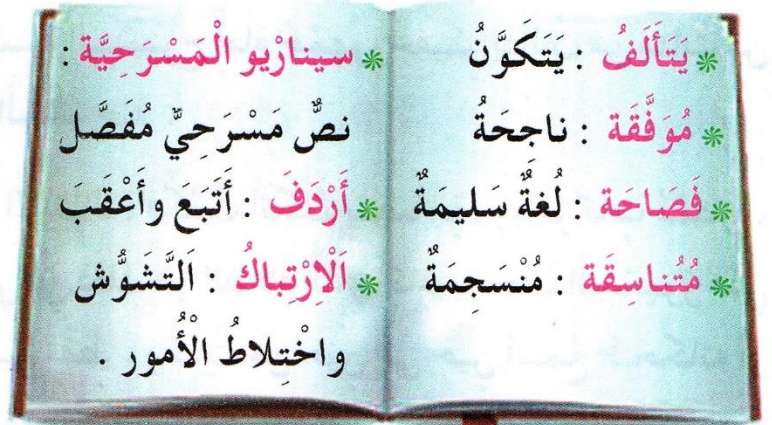 * يَتَأَلَفُ : يَتَكَوَّنُ
* مُوَفَّقَة : ناجحَةُ
* فَصَاحَة : لُغةٌ سَليمَةٌ
* مُتُناسِقَة : مُنْسَجِمَةٌ
* سيناريو الْمَسْرَحيَّة :
نصٌّ مَسْرَحيٌّ مُفَصَّل
* أَرْدَفَ : أَتَبَعَ وأَعْقَبَ
* اَلْاِرْتِباكُ : اَلتَّشَوُّش
واخْتِلاطُ الْأُمور .